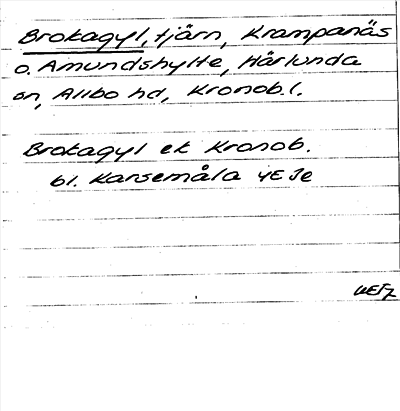 Brokagyl, tjärn, Krampanäs
o. Amundshylte, Härlunda
sn, Allbo hd, Kronob. l.
Brokagyl ek Kronob.
bl. Karsemåla 4E Je